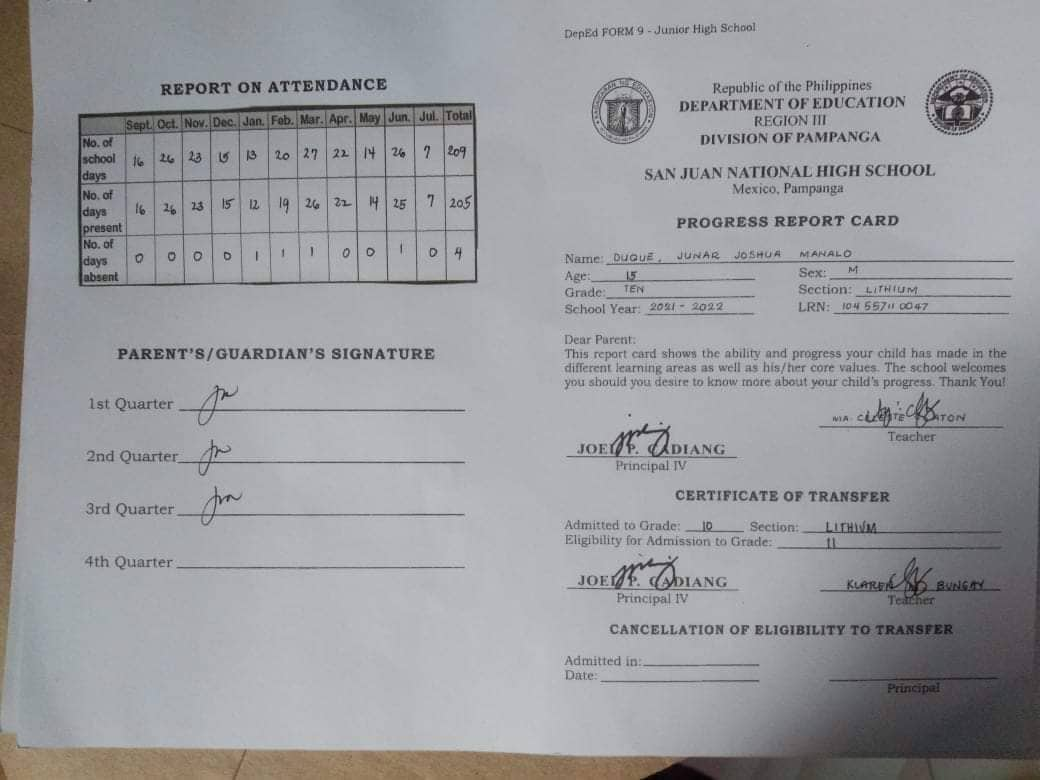 REPORT ON ATTENDANCE
Sept. Oct. Nov. Dec. Jan. Feb. Mar. Apr. May Jun. Jul. Total
No. of school days 16 26 23 15 13 20 27 22 14 26 7 209
No. of days present 16 26 23 15 12 19 26 22 14 25 7 205
No. of days absent 0 0 0 0 1 1 1 0 0 1 0 4
PARENT'S/GUARDIAN'S SIGNATURE
1st Quarter
2nd Quarter
3rd Quarter
4th Quarter
DepEd FORM 9 - Junior High School
Republic of the Philippines
DEPARTMENT OF EDUCATION
REGION III
DIVISION OF PAMPANGA
SAN JUAN NATIONAL HIGH SCHOOL
Mexico, Pampanga
PROGRESS REPORT CARD
Name: DUQUE, JUNAR JOSHUA MANALO
Age: 15 Sex: M
Grade: TEN Section: LITHIUM
School Year: 2021 - 2022 LRN: 104557110047
Dear Parent:
This report card shows the ability and progress your child has made in the
different learning areas as well as his/her core values. The school welcomes
you should you desire to know more about your child's progress. Thank You!
MA.
JOEL P. CADIANG Teacher
Principal IV
CERTIFICATE OF TRANSFER
Admitted to Grade: 10 Section: LITHIUM
Eligibility for Admission to Grade: 11
JOEL P. CADIANG BUNGAY
Principal IV Teacher
CANCELLATION OF ELIGIBILITY TO TRANSFER
Admitted in:
Date:
Principal